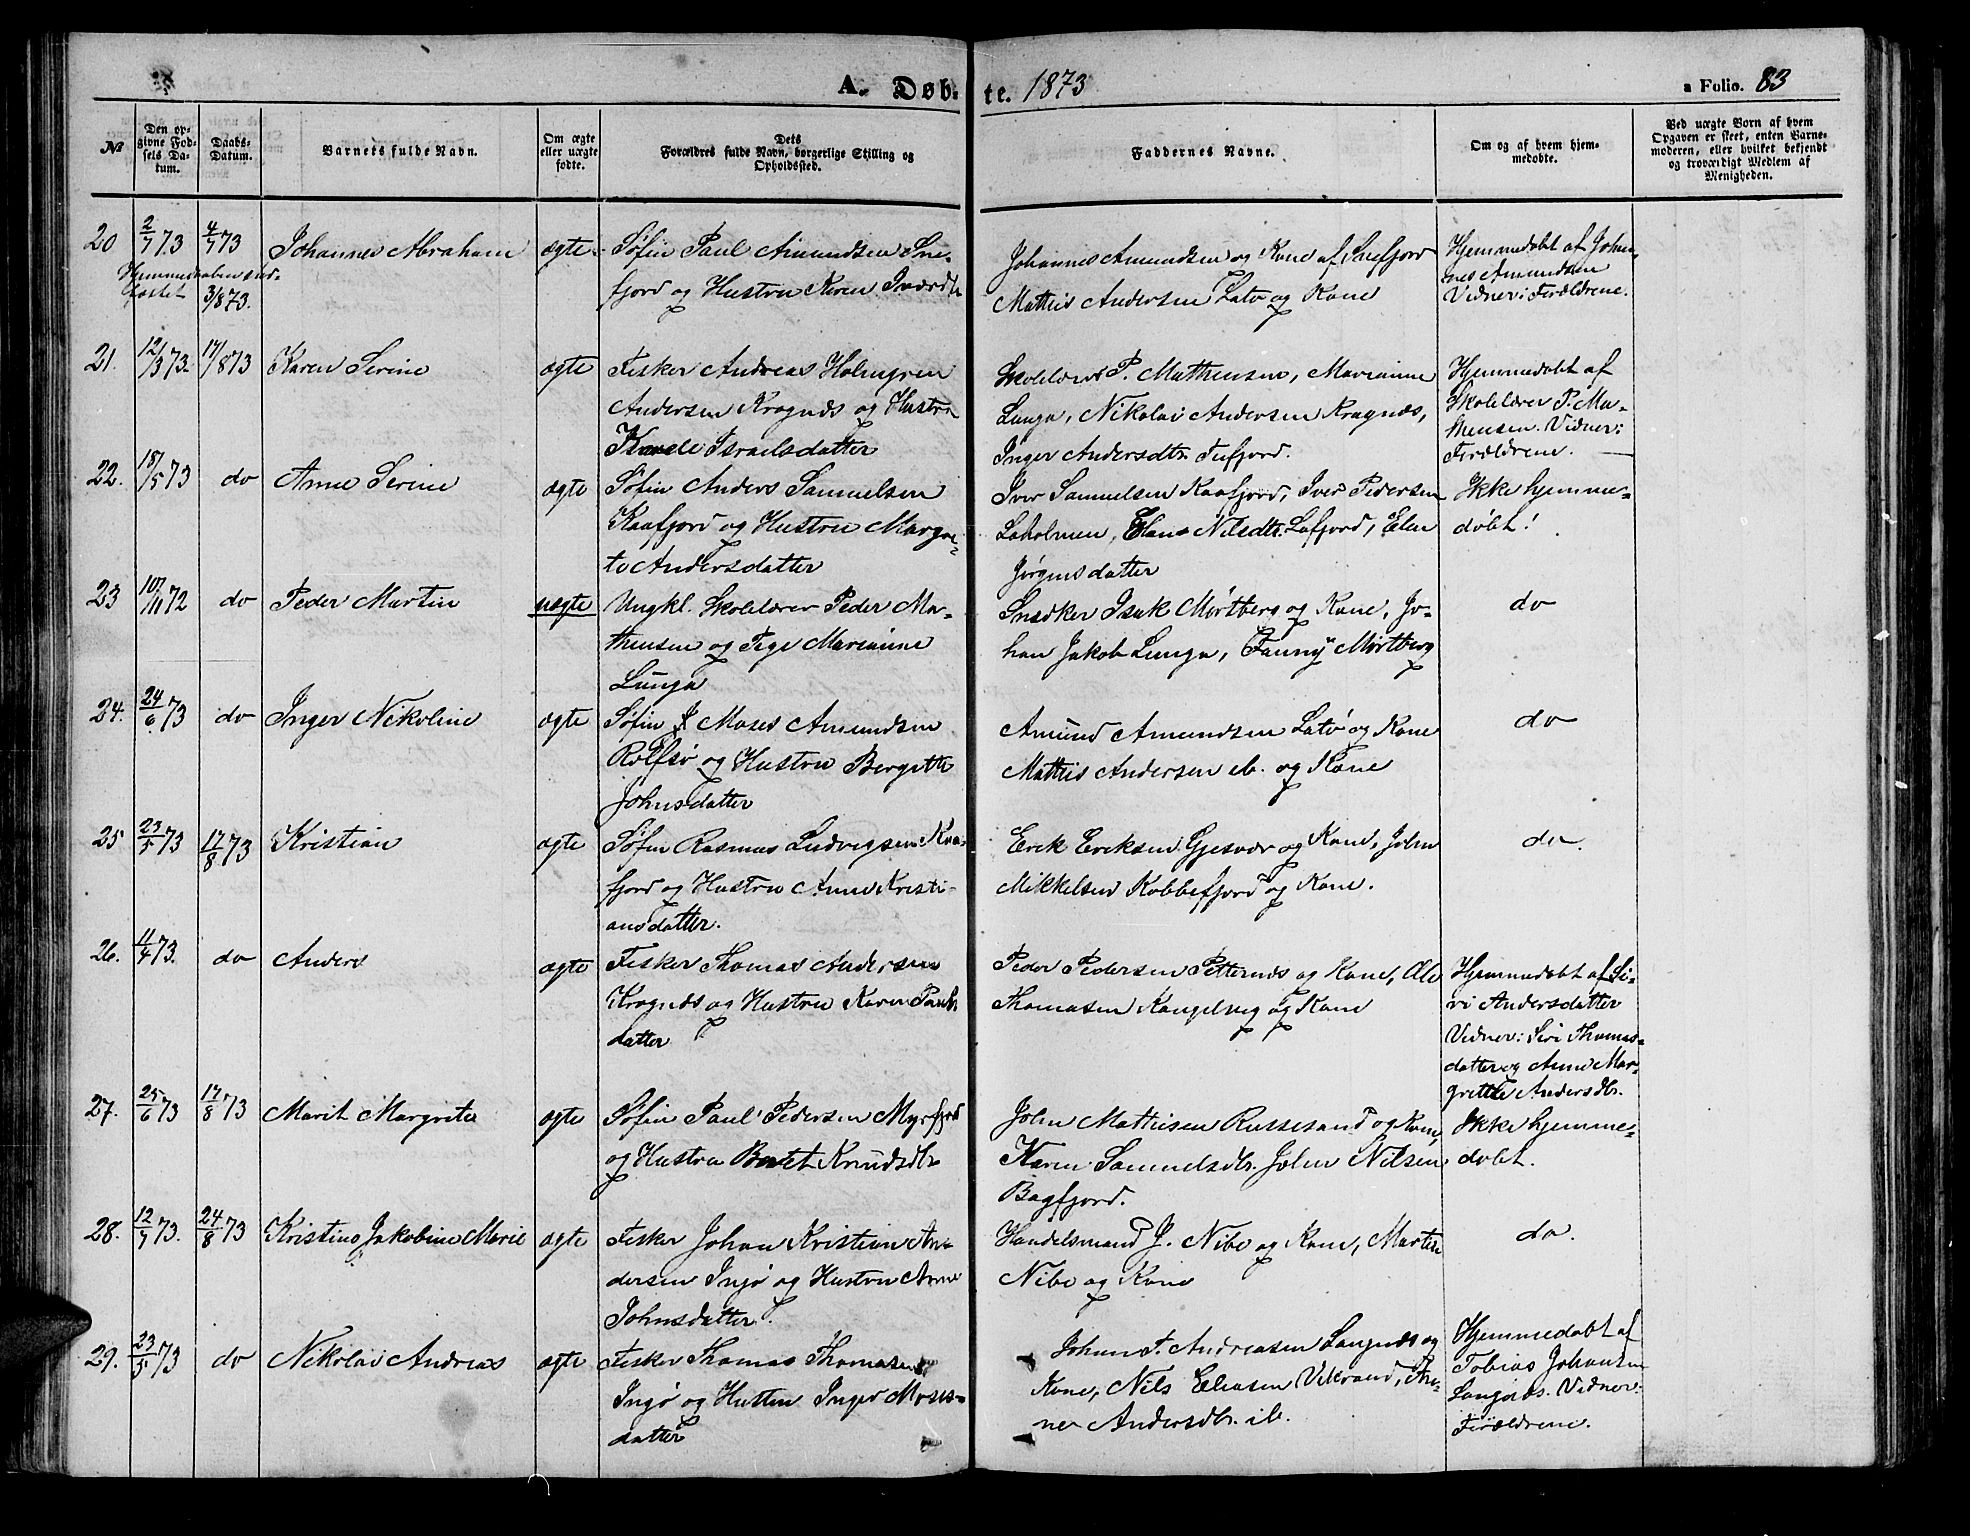 A. Døb-te. 1873
a Folio. 83
No
Den op-
givne Fød-
sels Da-
tum.
Daabs-
Datum.
Barnets fulde Navn.
Om ægte
eller uægte
fødte.
Dets
Forældres fulde Navn, borgerlige Stilling og
Opholdssted.
Faddernes Navne.
Om og af hvem hjem-
medøbte.
Ved uægte Børn af hvem
Opgaven er skeet, enten Barne-
moderen, eller hvilket bekjendt
og troværdigt Medlem af
Menigheden.
20 2/7 73 4/7 73 Johannes Abraham ægte Søfin Paul Amundsen Sne-
fjord og Hustru Karen
Hjemmedaaben stad-
fæstet 3/873.
Johannes Amundsen og Kone af Snefjord
Mathis Andersen Latø og Kone
Hjemmedøbt af Johan-
nes Amundsen
Vidner: Forældrene.
21. 12/3 73. 17/873 Karen Serine ægte Fisker Andreas Holmgren
Andersen Kragnæs og Hustru
Israelsdatter
Skolelærer P. Mathensen, Marianne
Lunga, Nikolai Andersen Kragnæs,
Inger Andersdtr. Tufjord.
Hjemmedøbt af
Skolelærer P. Ma-
thensen. Vidner:
Forældrene.
22. 18/5 73 do Anne Serine ægte Søfin Anders Samuelsen
Kaafjord og Hustru Margre-
te Andersdatter
Iver Samuelsen Kaafjord, Iver Pedersen
Laholmen, Nilsdtr. Lafjord, Elen
Jørgensdatter
Ikke hjemme-
døbt!
23 10/11 72 do Peder Martin uægte Ungkl. Skolelærer Peder Ma-
thensen og Pige Marianne
Lunga
Snedker Isak Mørtberg og Kone, Jo-
han Jakob Lunga, Fanny Mørtberg
do
24. 24/6 73 do Inger Nikoline ægte Søfin Moses Amundsen
Rolfsø og Hustru Bergitte
Johnsdatter
Amund Amundsen Latø og Kone
Mathis Andersen ib. og Kone
do
25 23/5 73 17/8 73 Kristian ægte Søfin Rasmus Ludvigsen Kaa-
fjord og Hustru Anne Kristi-
ansdatter.
Erik Eriksen Gjesvær og Kone, John
Mikkelsen Kobbefjord og Kone.
do.
26. 11/4 73. do Anders ægte Fisker Thomas Andersen
Kragnæs og Hustru Karen Pauls-
datter
Peder Pedersen Petternæs og Kone, Ole
Thomasen Kangelveg og Kone
Hjemmedøbt af Si-
ri Andersdatter
Vidner: Siri Thomas-
datter og Anne Mar-
grette Andersdtr.
27. 25/6 73 17/8 73 Marit Margrete ægte Søfin Paul Pedersen Myrfjord
og Hustru Beret Knudsdtr
John Mathisen Russesand og Kone,
Karen Samuelsdtr. John Nilsen
Bagfjord.
Ikke hjemme-
døbt.
28. 12/7 73. 24/8 73 Kristine Jakobine Marie ægte Fisker Johan Kristian An-
dersen Ingø og Hustru Anne
Johnsdatter.
Handelsmand J. Nibe og Kone, Martin
Nibe og Kone
do.
29. 23/5 73 do Nikolai Andreas ægte Fisker Thomas Thomasen
Ingø og Hustru Inger Moses-
datter
Johan F. Andreasen Langnæs og
Kone, Nils Eliasen Vikrand,
Andersdtr. ib.
Hjemmedøbt af
Tobias Johansen
Langnæs. Vidner:
Forældrene.